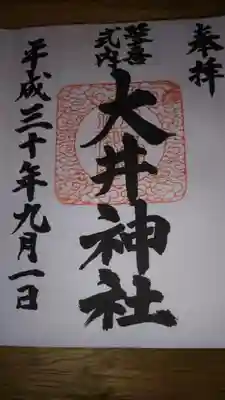 奉拝
延喜
式内
大井神社
平成三十年九月一日